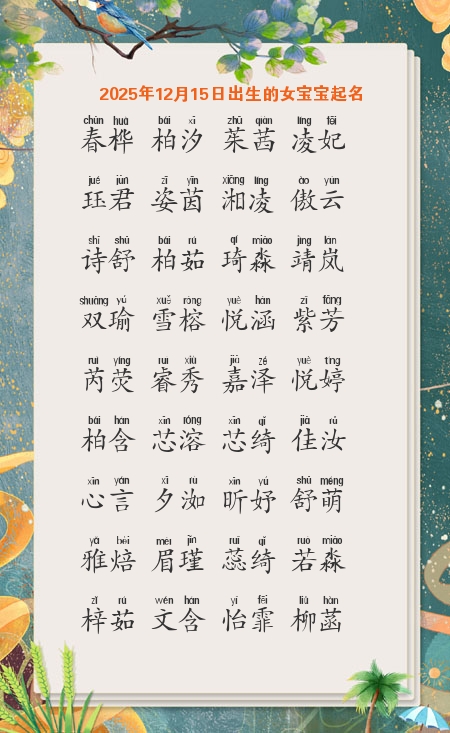 2025年12月15日出生的女宝宝起名
chūn huà bái xī zhū qiàn líng fēi
春桦 柏汐 茱茜 凌妃
jué jūn zī yīn xiāng líng ào yún
珏君 姿茵 湘凌 傲云
shī shū bái rú qí miǎo jìng lán
诗舒 柏茹 琦淼 靖岚
shuāng yú xuě róng yuè hán zǐ fāng
双瑜 雪榕 悦涵 紫芳
ruì yíng ruì xiù jiā zé yuè tíng
芮荧 睿秀 嘉泽 悦婷
bái hán xīn róng xīn qǐ jiā rǔ
柏含 芯溶 芯绮 佳汝
xīn yán xī rù xīn yú shū méng
心言 夕洳 昕妤 舒萌
yǎ bèi méi jǐn ruǐ qǐ ruò miǎo
雅焙 眉瑾 蕊绮 若淼
zǐ rú wén hán yí fēi liǔ hàn
梓茹 文含 怡霏 柳菡